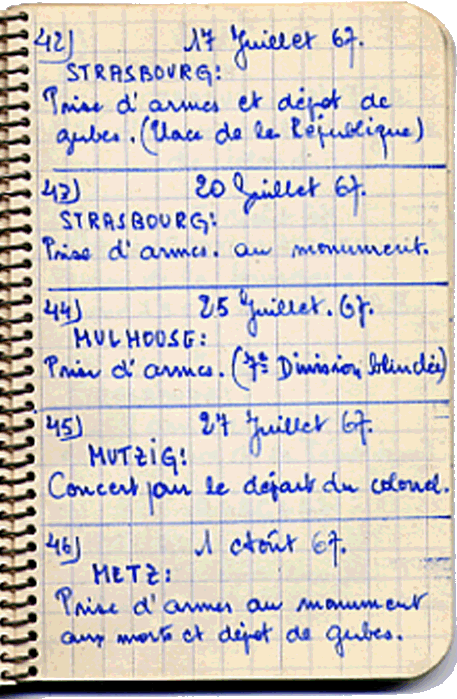 42) 17 Juillet 67.
STRASBOURG:
Prise d'armes et dépot de
gerbes. (Place de la République)
43) 20 Juillet 67.
STRASBOURG:
Prise d'armes. au monument.
44) 25 Juillet. 67.
MULHOUSE:
Prise d'armes. (7e Division blindée)
45) 27 Juillet 67.
MUTZIG:
Concert pour le départ du colonel.
46) 1 Août 67.
METZ:
Prise d'armes au monument
aux morts et dépot de gerbes.